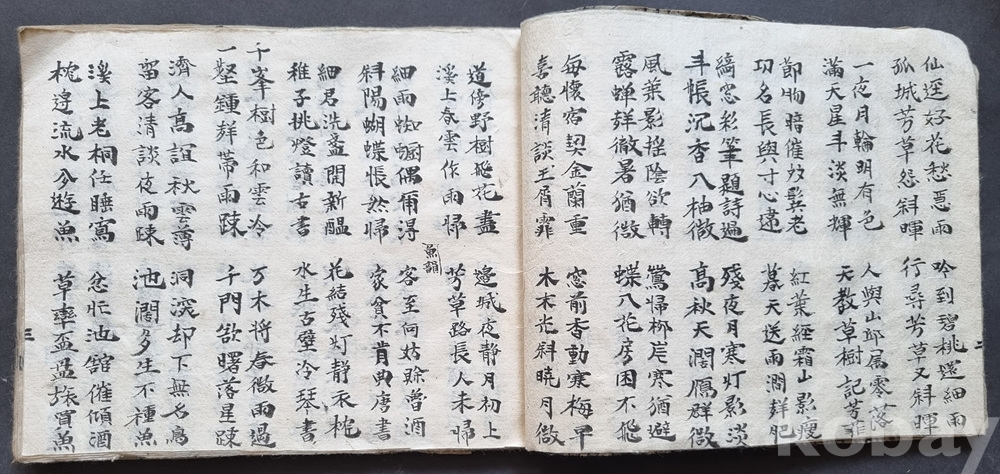 仙逕好花愁惡雨 吟到碧桃還細雨
孤城芳草怨斜暉 行尋芳草又斜暉
一夜月輪明有色 人與山邱属零落
滿天星斗淡無輝 天教草樹記芳菲
節物暗催双髩老 紅葉經霜山影瘦
功名長與寸心違 暮天送雨澗聲肥
縞窓彩筆題詩過 殘夜月寒灯影淡
斗帳沉香八柚微 高秋天濶鴈群微
風葉影搖陰欲轉 鶯歸柳岸寒猶避
露蟬聲微暑猶微 蝶八花房困不飛
每懷宿契金蘭重 窓前香動寒梅早
喜聽清談玉屑霏 木末光斜曉月微
二
道傍野樹飛花盡 邊城夜靜月初上
溪上春雲作雨歸 芳草路長人未歸
魚韻
細雨蜘偶爾淂 客至何姑賒魯酒
斜陽蝴蝶悵然歸 家貧不肯典唐書
細君洗盞開新醞 花結殘灯靜衾枕
稚子挑燈讀古書 水生古壁冷琴書
千峯樹色和雲冷 万木將春微雨過
一壑鍾聲帶雨踈 千門欲曙落星踈
濟人高誼秋雲薄 洞深却下無名鳥
留客清談夜雨踈 池濶多生不種魚
溪上老桐任睡寫 忩忙池舘催傾酒
枕邊流水分遊魚 草率盃盂旋買魚
三